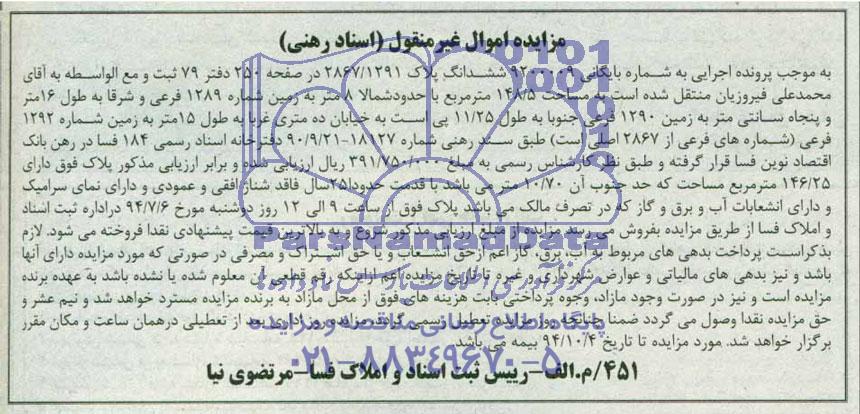 مزایده اموال غیرمنقول (اسناد رهنی)
به موجب پرونده اجرایی به شماره بایگانی ۹۲۰۰۰۰۹ ششدانگ پلاک ۲۸۶۷/۱۲۹۱ در صفحه ۲۵۰ دفتر ۷۹ ثبت و مع الواسطه به آقای
محمدعلی فیروزیان منتقل شده است به مساحت ۱۴۸/۵ مترمربع با حدودشمالا ۸ متر به زمین شماره ۱۲۸۹ فرعی و شرقا به طول ۱۶متر
و پنجاه سانتی متر به زمین ۱۲۹۰ فرعی جنوبا به طول ۱۱/۲۵ پی است به خیابان ده متری غربا به طول ۱۵متر به زمین شماره ۱۲۹۲
فرعی (شماره های فرعی از ۲۸۶۷ اصلی است) طبق سند رهنی شماره ۱۸۱۲۷-۹۰/۹/۲۱ دفترخانه اسناد رسمی ۱۸۴ فسا در رهن بانک
اقتصاد نوین فسا قرار گرفته و طبق نظر کارشناس رسمی به مبلغ ۳۹۱/۷۵۰/۰۰۰ ریال ارزیابی شده و برابر ارزیابی مذکور پلاک فوق دارای
۱۴۶/۲۵ مترمربع مساحت که حد جنوب آن ۱۰/۷۰ متر می باشد با قدمت حدودا۲۵سال فاقد شناژ افقی و عمودی و دارای نمای سرامیک
و دارای انشعابات آب و برق و گاز که در تصرف مالک می باشد پلاک فوق از ساعت ۹ الی ۱۲ روز دوشنبه مورخ ۹۴/۷/۶ دراداره ثبت اسناد
و املاک فسا از طریق مزایده بفروش می رسد مزایده از مبلغ ارزیابی مذکور شروع و به بالاترین قیمت پیشنهادی نقدا فروخته می شود. لازم
بذکراست پرداخت بدهی های مربوط به آب، برق، گاز اعم ازحق انشعاب و یا حق اشتراک و مصرفی در صورتی که مورد مزایده دارای آنها
باشد و نیز بدهی های مالیاتی و عوارض شهرداری و غیره تا تاریخ مزایده اعم ازاینکه رقم قطعی آن معلوم شده یا نشده باشد به عهده برنده
مزایده است و نیز در صورت وجود مازاد، وجوه پرداختی بابت هزینه های فوق از محل مازاد به برنده مزایده مسترد خواهد شد و نیم عشر و
حق مزایده نقدا وصول می گردد ضمنا چنانچه روز مزایده تعطیل رسمی گردد، مزایده روز اداری بعد از تعطیلی درهمان ساعت و مکان مقرر
برگزار خواهد شد. مورد مزایده تا تاریخ ۹۴/۱۰/۴ بیمه می باشد.
۴۵۱/م.الف-رییس ثبت اسناد و املاک فسا-مرتضوی نیا
ParsNamadData
مرکز فرآوری اطلاعات پارس نماد داده ها
پایگاه اطلاع رسانی مناقصه و مزایده
۰۲۱-۸۸۳۴۹۶۷۰-۵